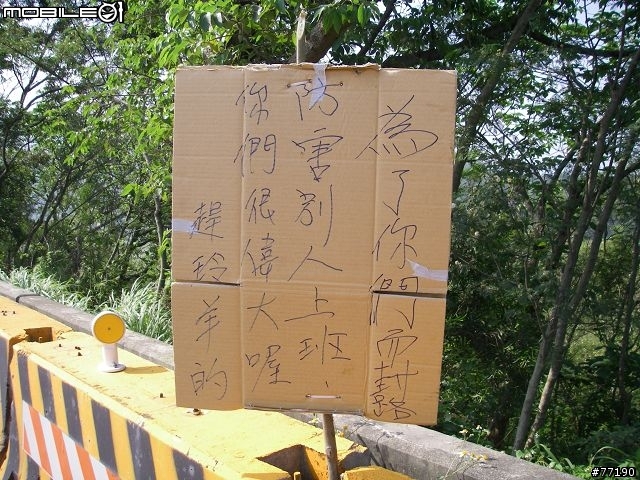 MOBILE01
為了你們而封路
防害別人上班、
你們很偉大喔
趕羚羊的
#77190